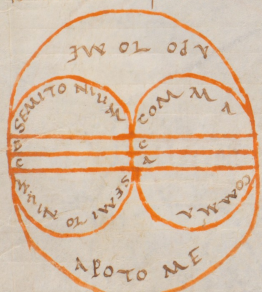 APO TO ME
SEMITO NIUM
COM MA
B C
C A
SEMI TO NIUM
COMMA
APOTO ME